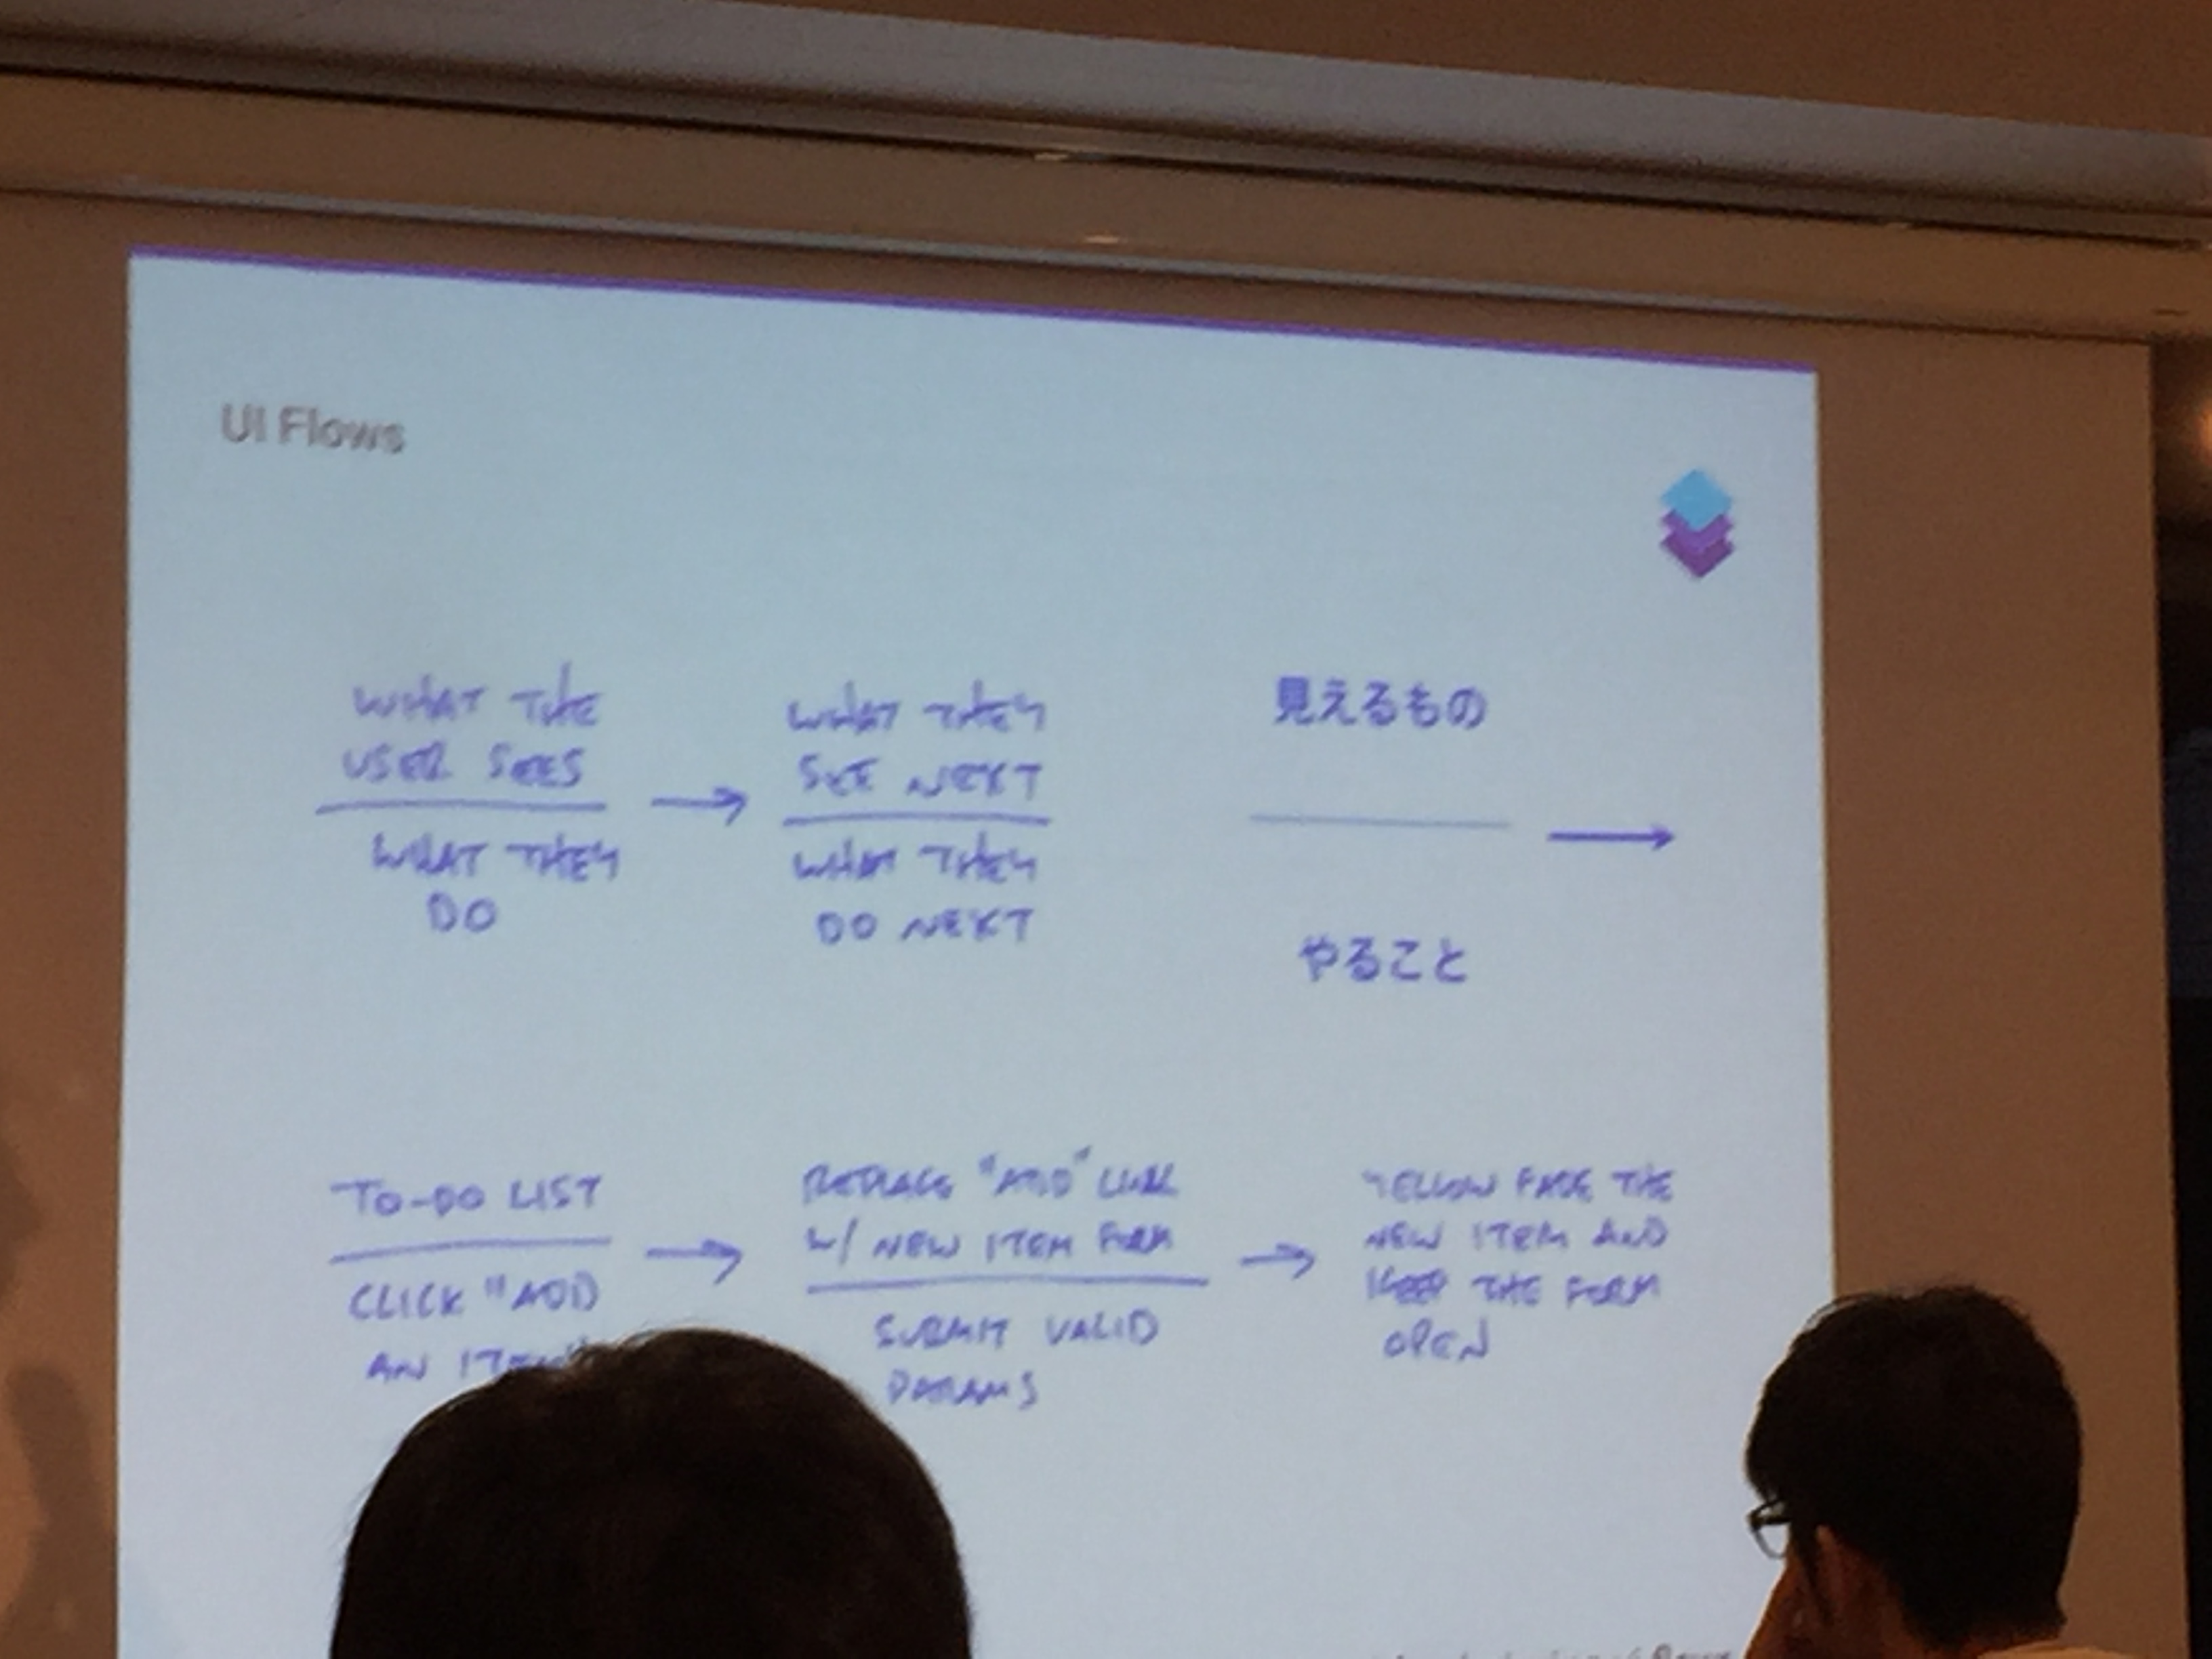 UI Flows
WHAT THE
USER SEES
WHAT THEY
DO
WHAT THEY
SEE NEXT
WHAT THEY
DO NEXT
見えるもの
やること
TO-DO LIST
CLICK "ADD
AN ITEM"
REPLACE "ADD" LINK
W/ NEW ITEM FORM
SUBMIT VALID
PARAMS
YELLOW FADE THE
NEW ITEM AND
KEEP THE FORM
OPEN